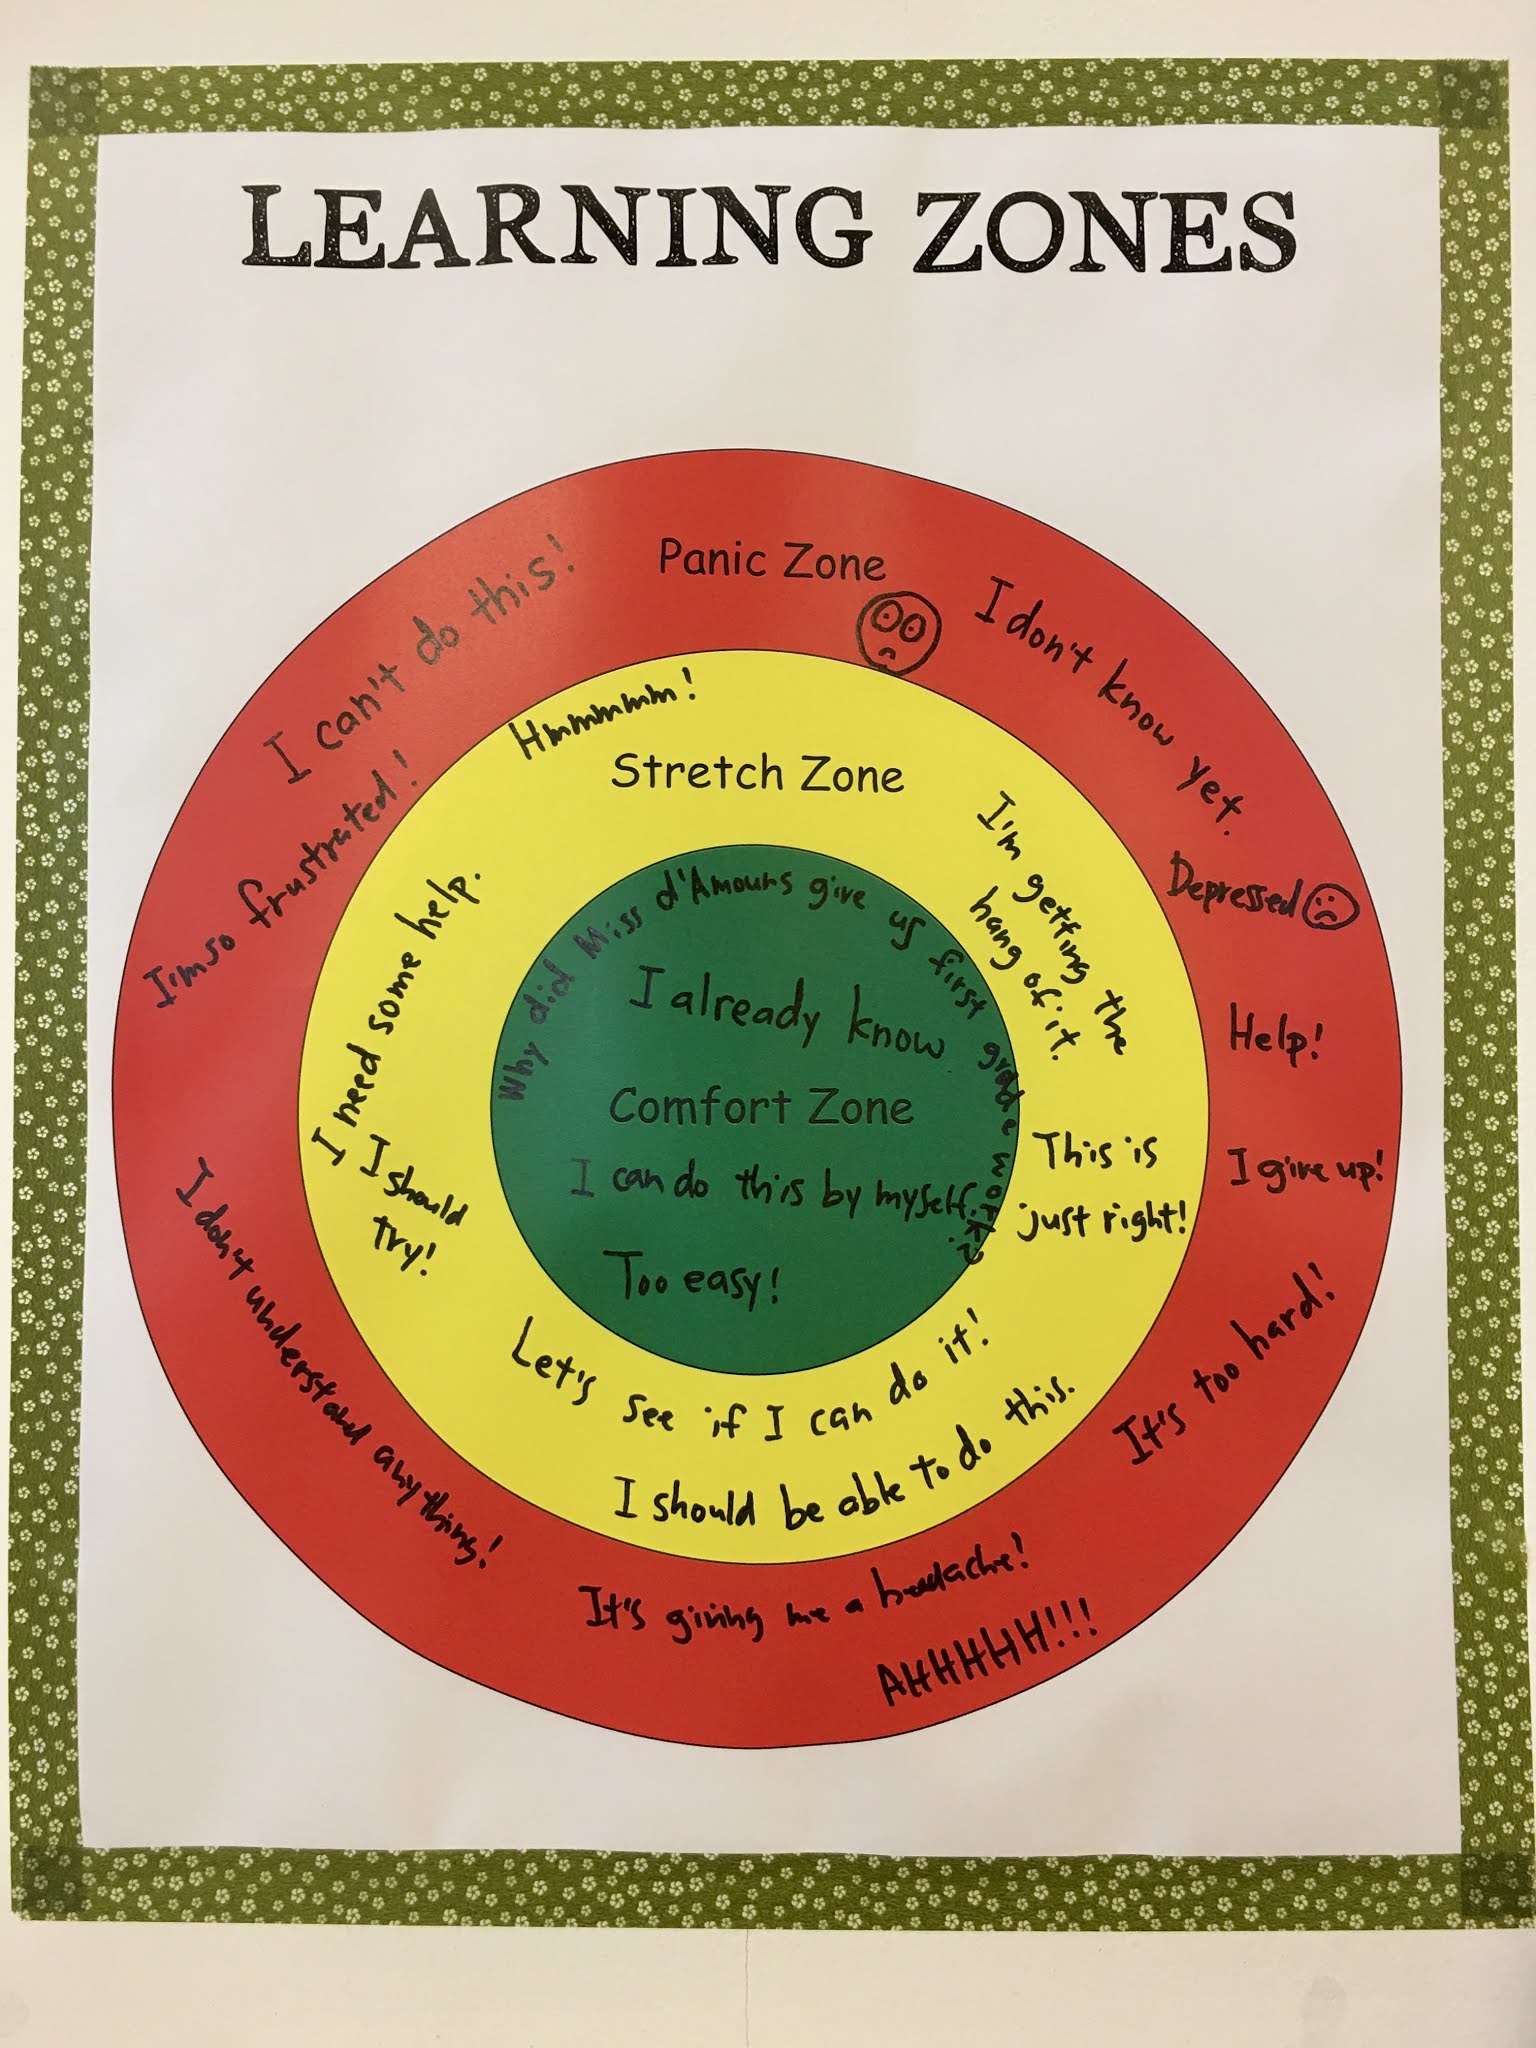 LEARNING ZONES
Panic Zone
I can't do this!
I'm so frustrated!
I don't know yet.
Depressed
Help!
I give up!
It's too hard!
I don't understand anything!
It's giving me a headache!
AHHHHH!!!
Hmmmmm!
Stretch Zone
I need some help.
I should
try!
I'm getting the
hang of it.
This is
just right!
Let's see if I can do it!
I should be able to do this.
Why did Miss d'Amours give us first grade work?
I already know
Comfort Zone
I can do this by myself.
Too easy!